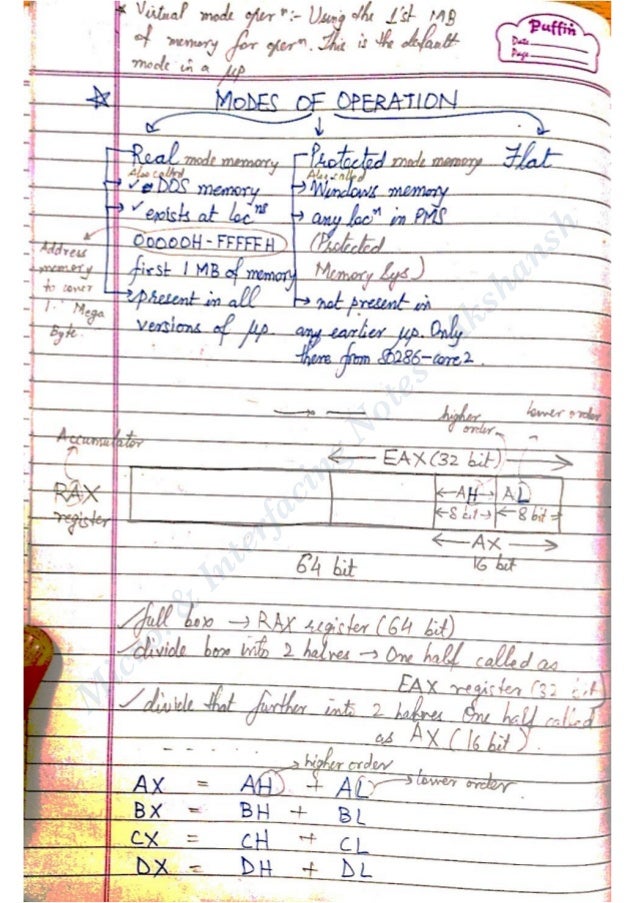 * Virtual mode oper^n:- Using the 1'st MB
of memory for oper^n. This is the default
mode in a μp
Puffin
Date
Page
MODES OF OPERATION
Real mode memory
Also called
→ ✓ DOS memory
→ ✓ exists at loc^ns
00000H-FFFFFH
first 1 MB of memory
→ present in all
versions of μp.
Address
memory
to cover
1 Mega
Byte.
Protected mode memory
Also called
→ Windows memory
→ any loc^n in PMS
(Protected
Memory Sys)
→ not present in
any earlier μp. Only
there from 80286-core2.
Flat
higher
order
lower order
Accumulator
← EAX (32 bit) →
RAX
register
←AH→ AL
←8 bit→ ←8 bit→
← AX →
16 bit
64 bit
✓ full box → RAX register (64 bit)
✓ divide box into 2 halves → One half called as
EAX register (32 bit)
✓ divide that further into 2 halves One half called
as AX (16 bit).
higher order
AX = AH + AL → lower order
BX = BH + BL
CX = CH + CL
DX = DH + DL